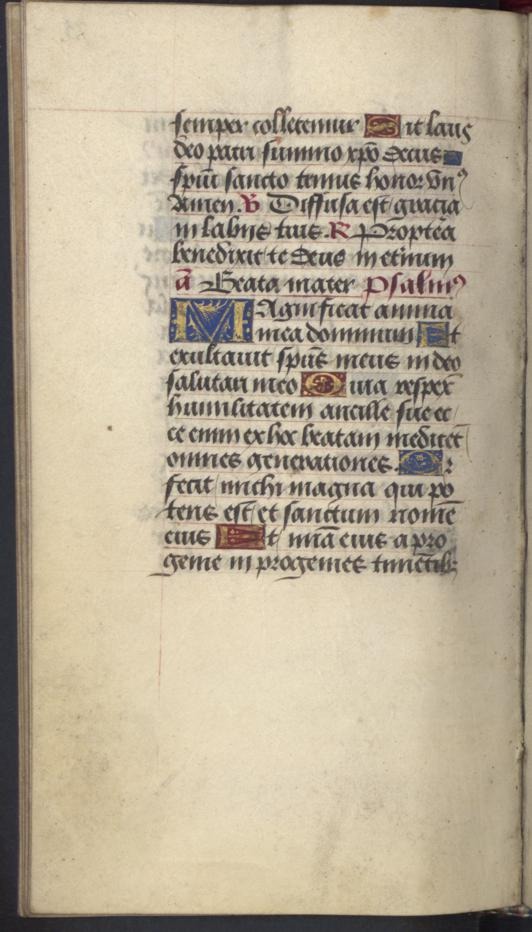 semper colletemur Sit laus
deo patri summo xpō decus
spūi sancto trinus honor Vnꝰ
Amen. V Diffusa est gracia
in labiis tuis. R Proptea
benedixit te deus in eternum
ā Beata mater Psalmꝰ
Magnificat anima
mea dominum Et
exultauit spūs meus in deo
salutari meo Quia respex
humilitatem ancille sue ec
ce enim ex hoc beatam me dicēt
omnes generationes. Qr
fecit michi magna qui po
tens est et sanctum nomē
eius Et mīa eius a pro
genie in progenies timētib;